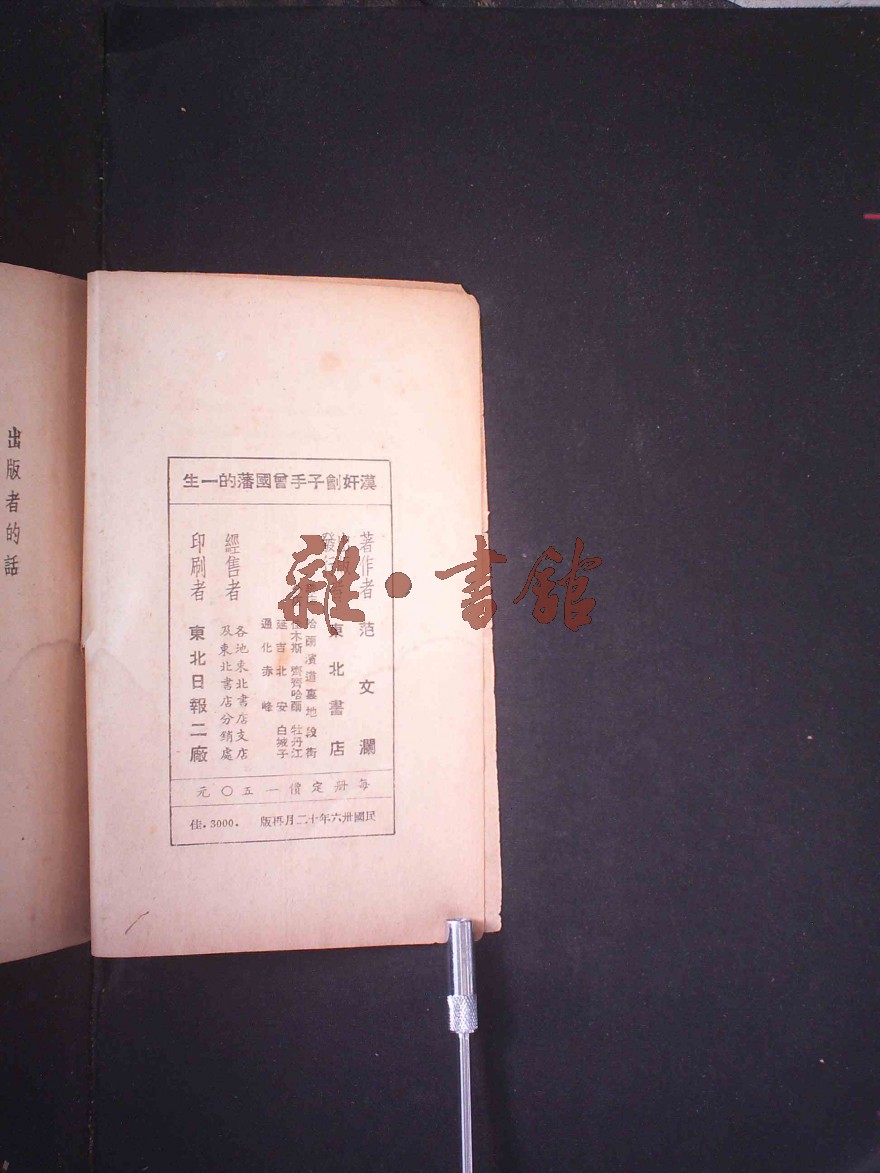 漢奸劊子手曾國藩的一生
著作者 范文瀾
發 東北書店
哈爾濱道裏地段街
木斯 齊齊哈爾 牡丹江
延吉 北安 白城子
通化 赤峰
經售者 各地東北書店支店
及東北書店分銷處
印刷者 東北日報二廠
每册定價一五〇元
民國卅六年十二月再版 3000.佳
出版者的話
雜·書館